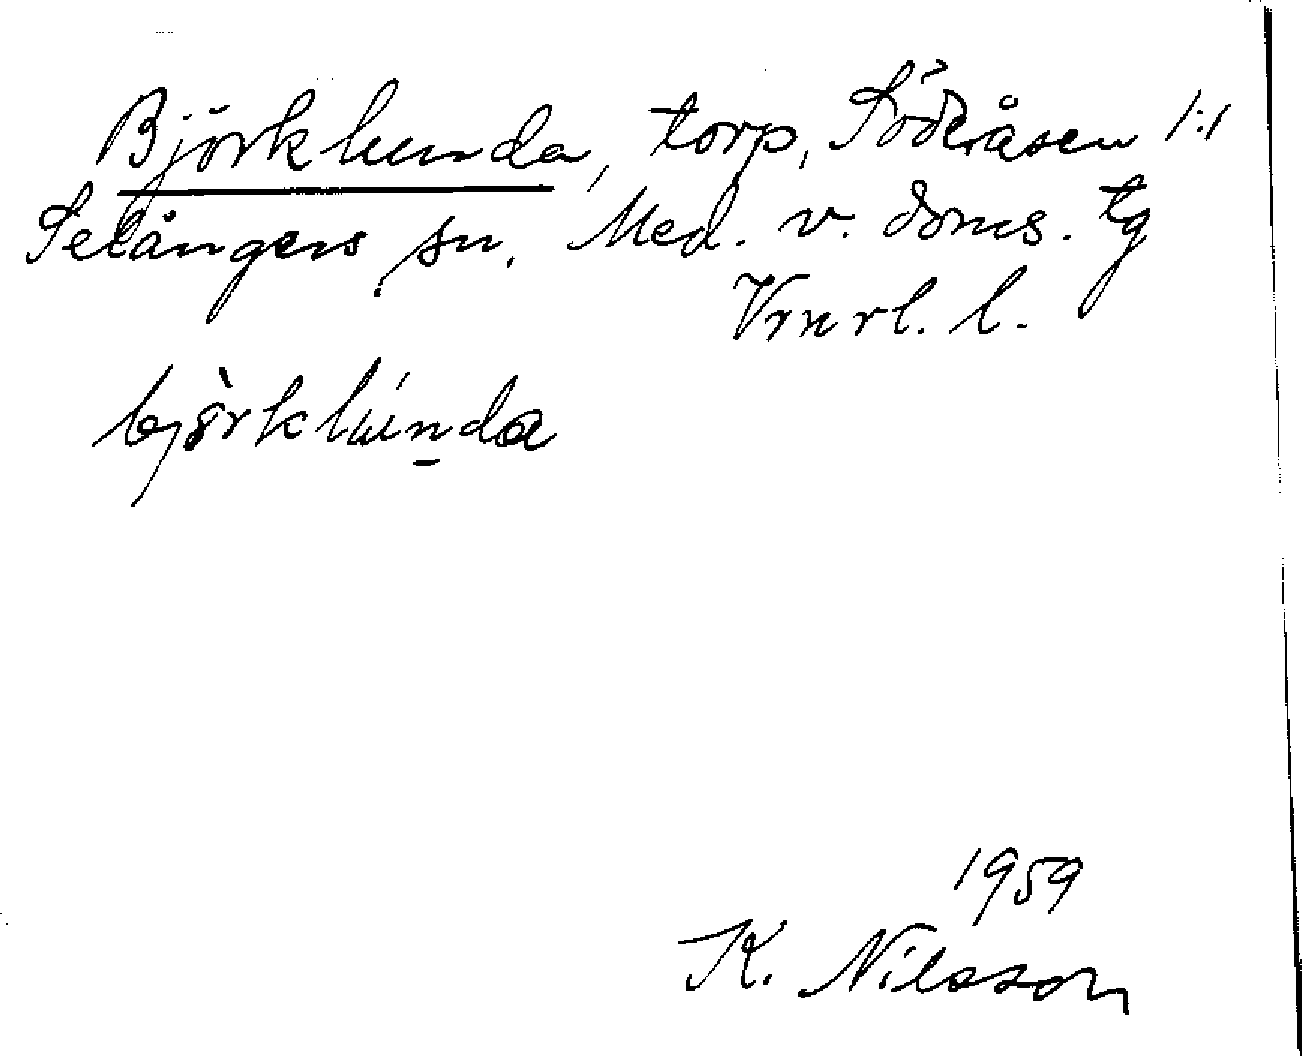 Björklunda, torp, Söderåsen 1:1
Selångers sn, Med. v. doms. tg
Vrnrl. l.
bjö̀rklúnda
1959
K. Nilsson